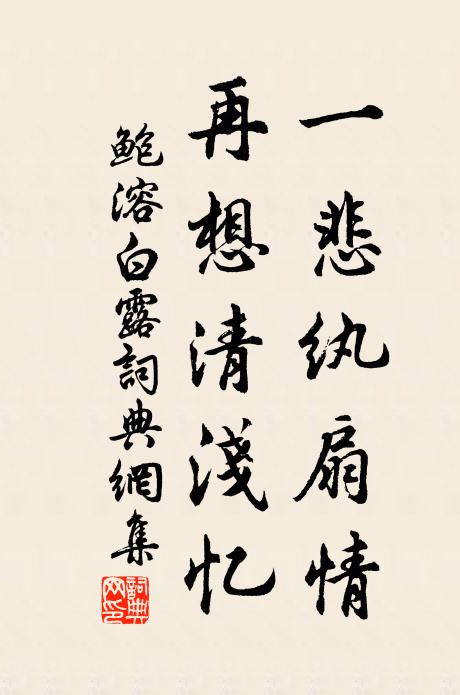 一悲纨扇情
再想清淺忆
鮑溶白露詞典網集
詞典網印